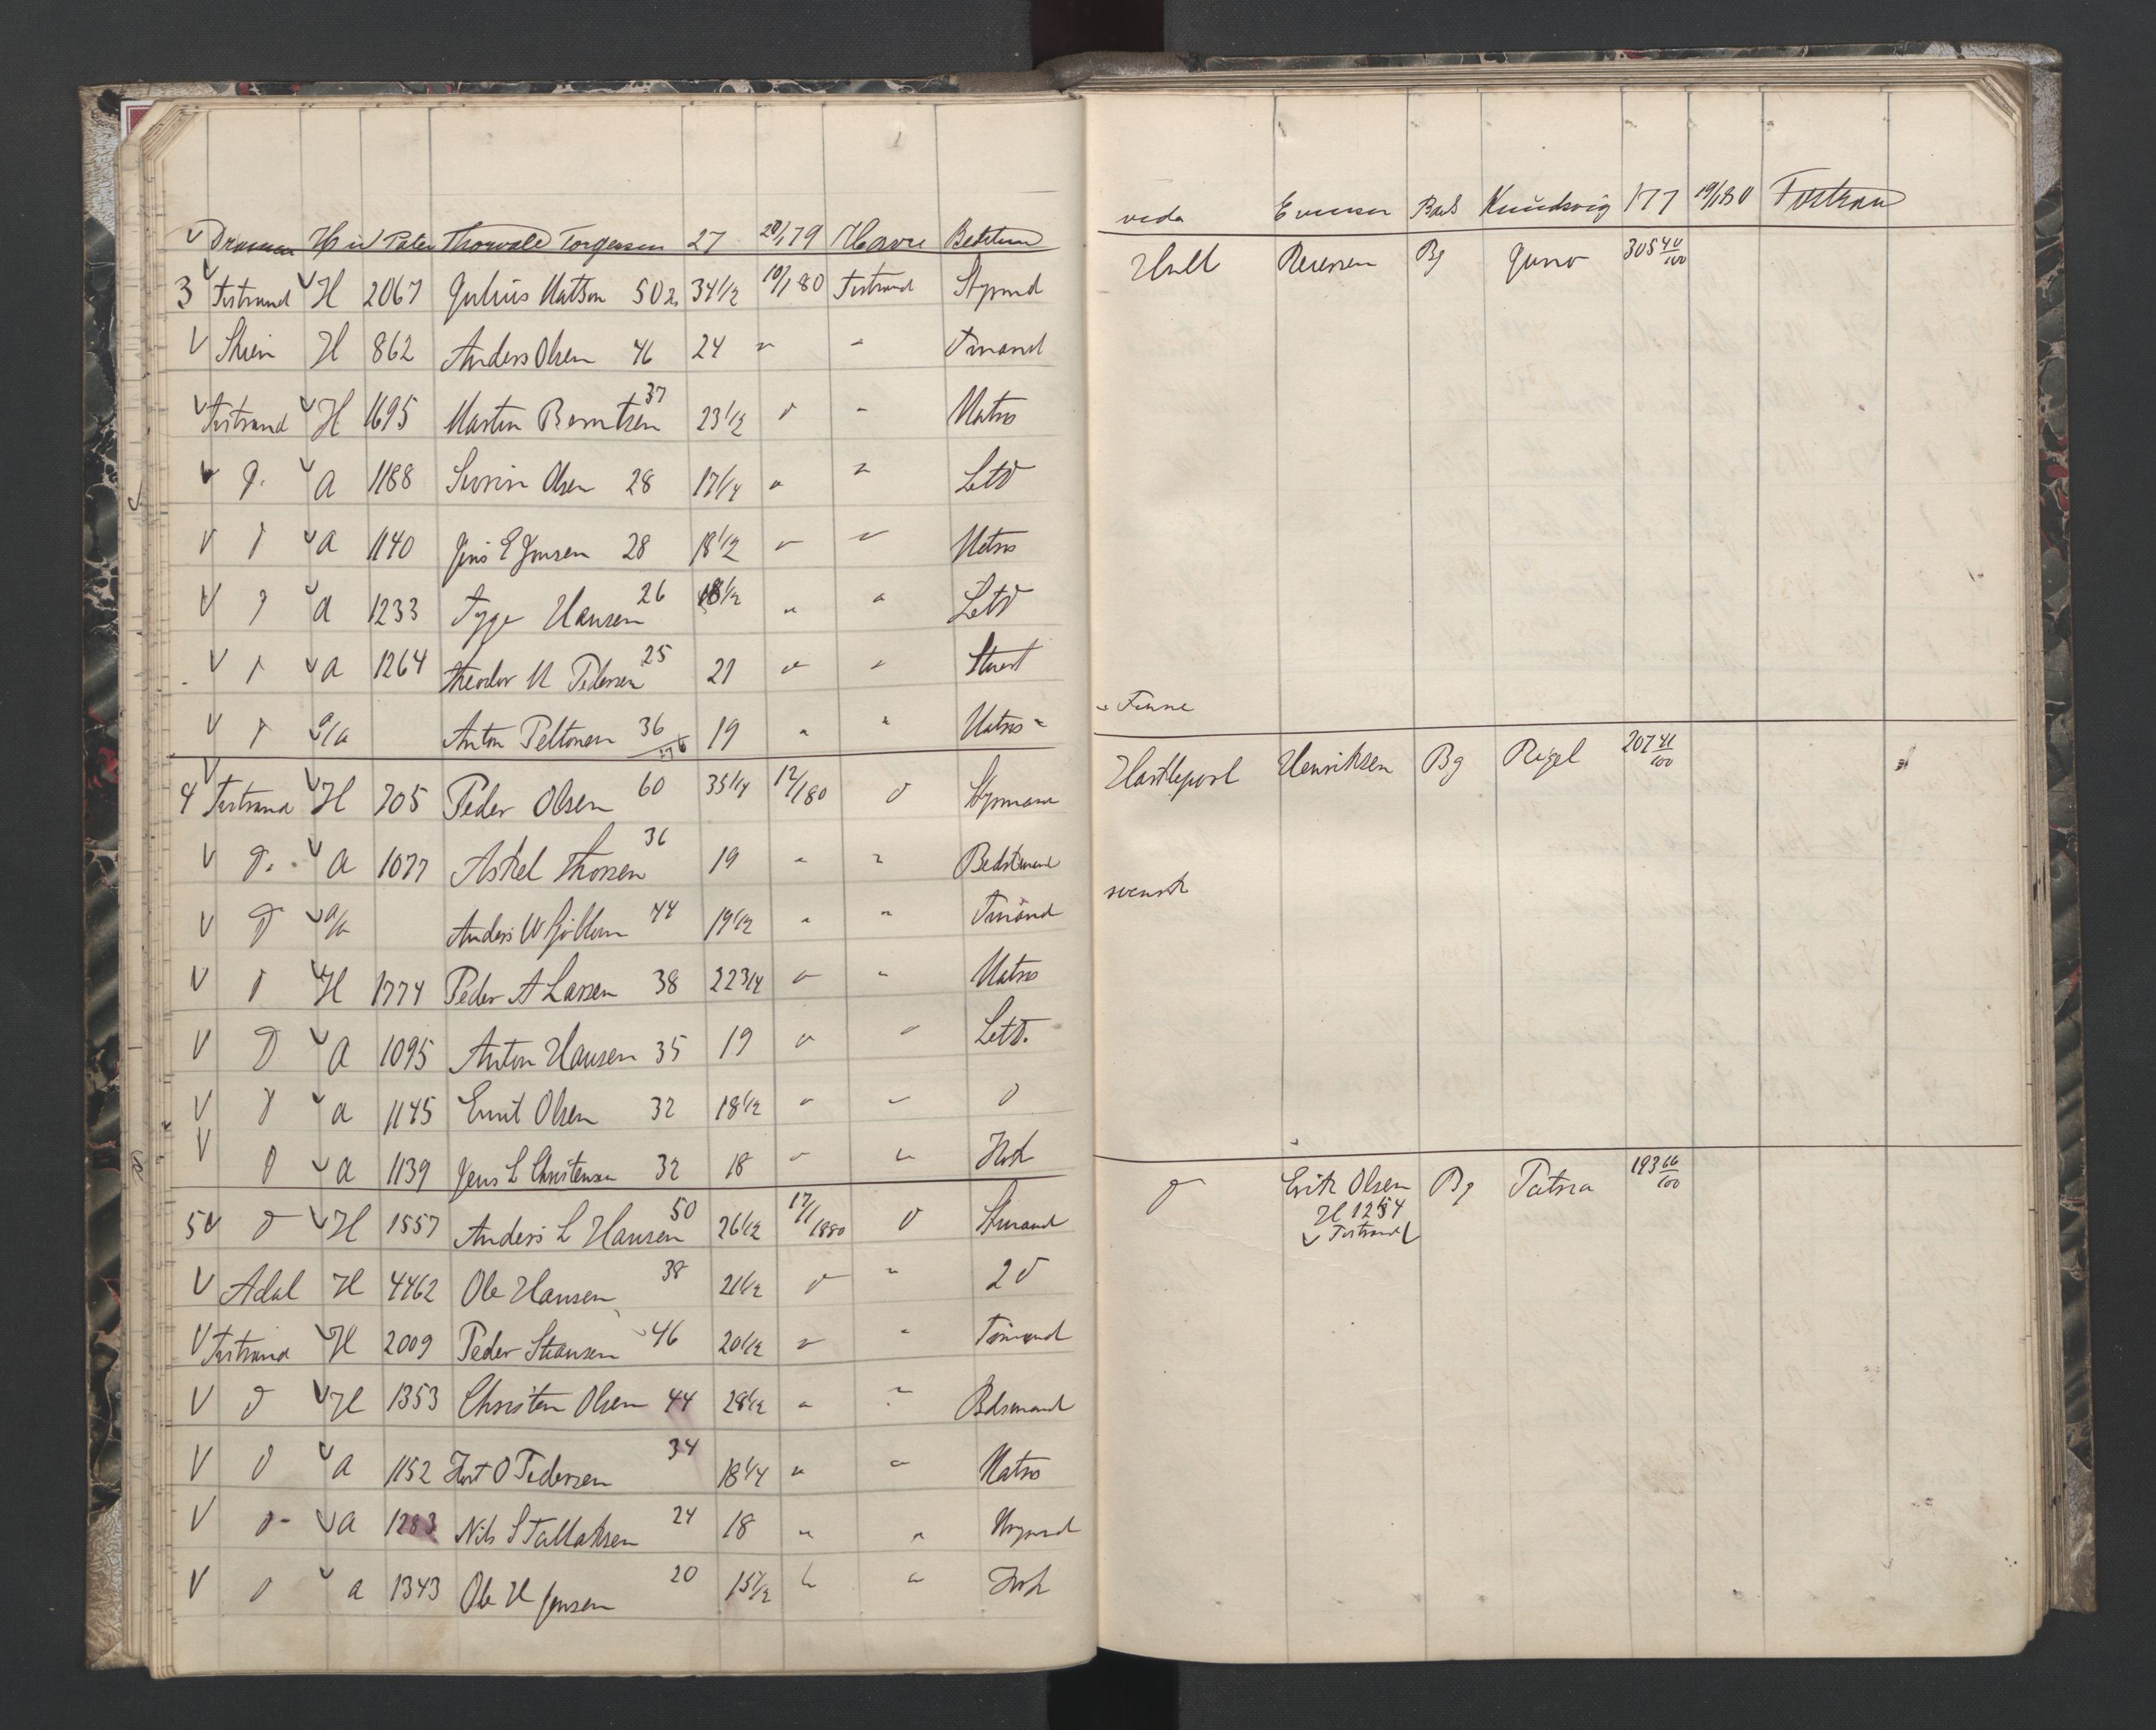 v Drammen H i Patent Thorvald Torgersen 27 20/1 79 Havre Bedstem
3 v Tvestrand v H 2067 Julius Matson 50 34 1/2 10/1 80 Tvestrand Stymd
v Skien H 862 Anders Olsen 46 24 " " Tmand
v Tvestrand v H 1695 Martin Berntsen 37 23 1/2 d " Matros
v d. v a 1188 Severin Olsen 28 17 1/4 " " Letd
v d v a 1140 Jens E Jensen 28 18 1/2 " " Matros
v d v a 1233 Tyge Hansen 26 18 1/2 " " Letd
v d v a 1264 Theodor M Pedersen 25 21 " " Stuert
v d a/a Anton Peltonen 36 19 " " Matros "
4 v Tvestrand v H 705 Peder Olsen 60 35 1/4 12/1 80 d Stymand
v d. v a 1077 Askel Thorsen 36 19 " " Bedstemand
v d v a/a Anders W 44 19 1/2 " " Tmand
v d v H 1774 Peder A Larsen 38 22 3/4 " " Matros
v d v a 1095 Anton Hansen 35 19 " " Letd.
v d v a 1145 Emil Olsen 32 18 1/2 " " d
v d v a 1139 Jens L Christensen 32 18 " " Kok
5 v d v H 1557 Anders L Hansen 50 26 1/2 17/1 1880 d Stmand
v Adal H 4462 Ole Hansen 38 21 1/2 d " 2 d
v Tvestrand v H 2009 Peder Stiansen 46 20 1/2 " " Tømmand
v d v H 1353 Christen Olsen 44 28 1/2 " " Bdsmand
v d v a 1152 O Pedersen 34 18 1/4 " " Matros
v d v a 1283 Nils S Tallaksen 24 18 " "
v d v a 1343 Ole H Jensen 20 15 1/2 " " Kok
veda Evensen Bark Knudsvig 177 19/1 80 Tvestrand
Hull Reiersen Bg Juno 305 40/100
" Finne
Hartlepool Henriksen Bg Rigel 207 41/100
svensk
d Erik Olsen Bg Patria 193 66/100
H 1254
v Tvestrand